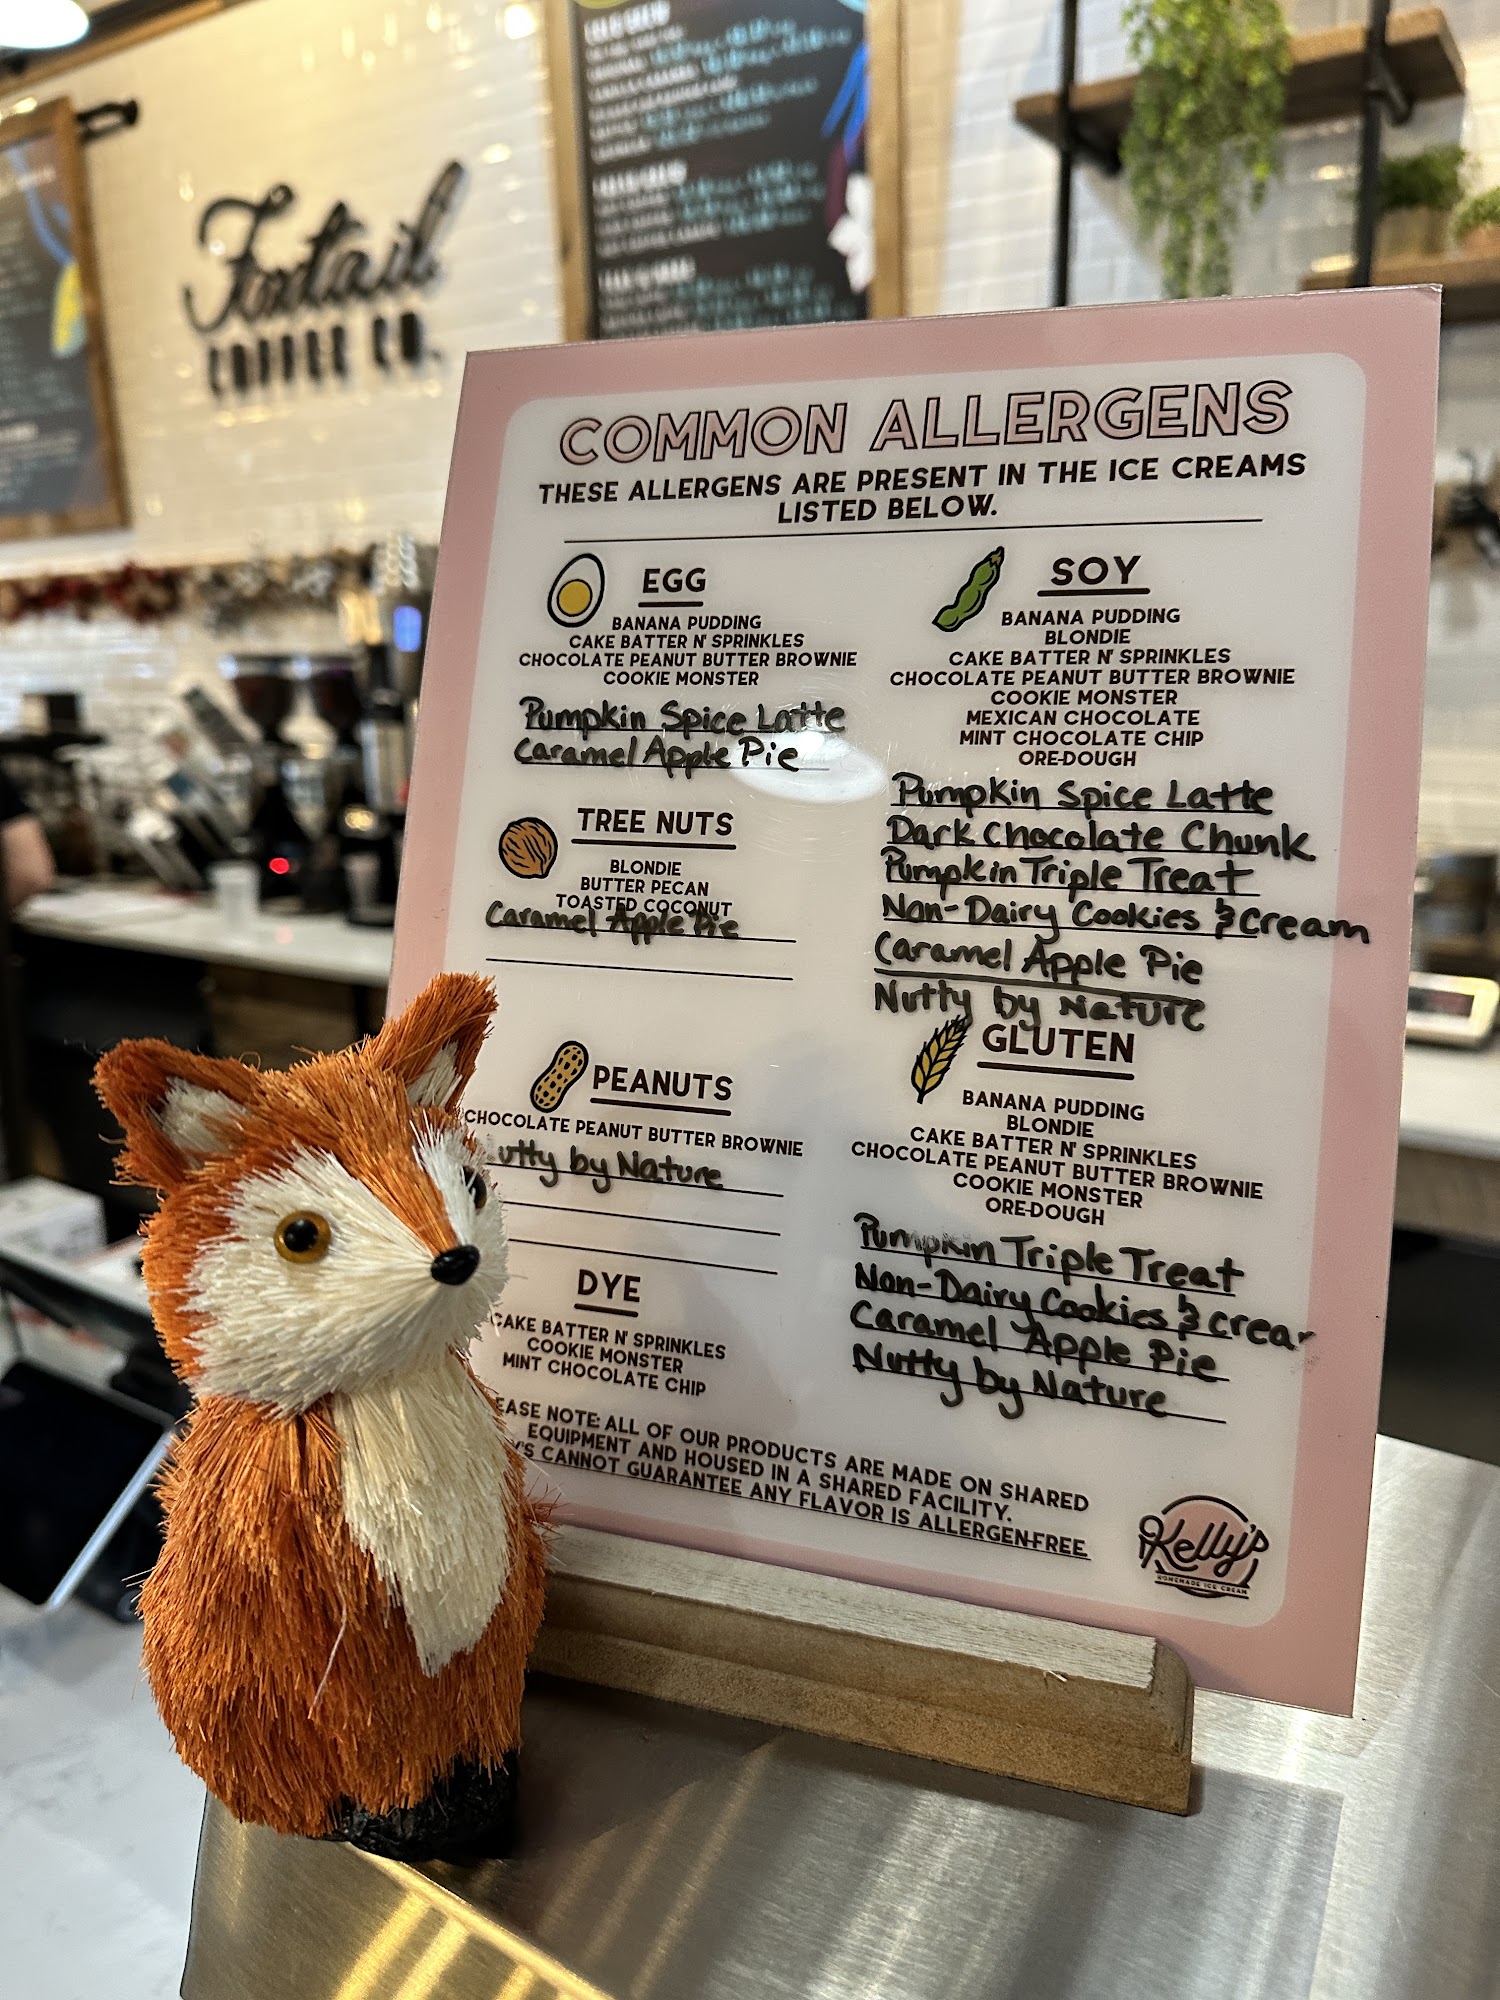 Foxtail
COFFEE CO.
COMMON ALLERGENS
THESE ALLERGENS ARE PRESENT IN THE ICE CREAMS
LISTED BELOW.
EGG
BANANA PUDDING
CAKE BATTER N' SPRINKLES
CHOCOLATE PEANUT BUTTER BROWNIE
COOKIE MONSTER
Pumpkin Spice Latte
Caramel Apple Pie
TREE NUTS
BLONDIE
BUTTER PECAN
TOASTED COCONUT
Caramel Apple Pie
PEANUTS
CHOCOLATE PEANUT BUTTER BROWNIE
utty by Nature
DYE
CAKE BATTER N' SPRINKLES
COOKIE MONSTER
MINT CHOCOLATE CHIP
SOY
BANANA PUDDING
BLONDIE
CAKE BATTER N' SPRINKLES
CHOCOLATE PEANUT BUTTER BROWNIE
COOKIE MONSTER
MEXICAN CHOCOLATE
MINT CHOCOLATE CHIP
ORE-DOUGH
Pumpkin Spice Latte
Dark Chocolate Chunk
Pumpkin Triple Treat
Non-Dairy Cookies & Cream
Caramel Apple Pie
Nutty by Nature
GLUTEN
BANANA PUDDING
BLONDIE
CAKE BATTER N' SPRINKLES
CHOCOLATE PEANUT BUTTER BROWNIE
COOKIE MONSTER
ORE-DOUGH
Pumpkin Triple Treat
Non-Dairy Cookies & crear
Caramel Apple Pie
Nutty by Nature
EASE NOTE: ALL OF OUR PRODUCTS ARE MADE ON SHARED
EQUIPMENT AND HOUSED IN A SHARED FACILITY.
Y'S CANNOT GUARANTEE ANY FLAVOR IS ALLERGEN-FREE.
Kelly's
HOMEMADE ICE CREAM